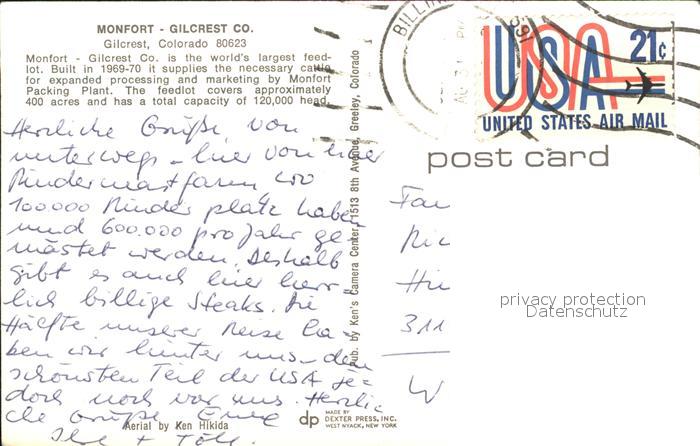 MONFORT - GILCREST CO.
Gilcrest, Colorado 80623
Monfort - Gilcrest Co. is the world's largest feed-
lot. Built in 1969-70 it supplies the necessary cattle
for expanded processing and marketing by Monfort
Packing Plant. The feedlot covers approximately
400 acres and has a total capacity of 120,000 head.
Herzliche Grüße von
unterwegs – hier von einer
Rindermastfarm, wo
100000 Rinder platz haben
und 600.000 pro Jahr ge-
mästet werden. Deshalb
gibt es auch hier herr-
lich billige Steaks. Die
Hälfte unserer Reise ha-
ben wir hinter uns – den
schönsten Teil der USA je-
doch noch vor uns. Herzli-
che Grüße Eure
+
Aerial by Ken Hikida
Pub. by Ken's Camera Center, 1513 8th Avenue, Greeley, Colorado
dp
MADE BY
DEXTER PRESS, INC.
WEST NYACK, NEW YORK
BILLIN
USA
21¢
UNITED STATES AIR MAIL
post card
Fam
Ric
Hin
311
W
privacy protection
Datenschutz